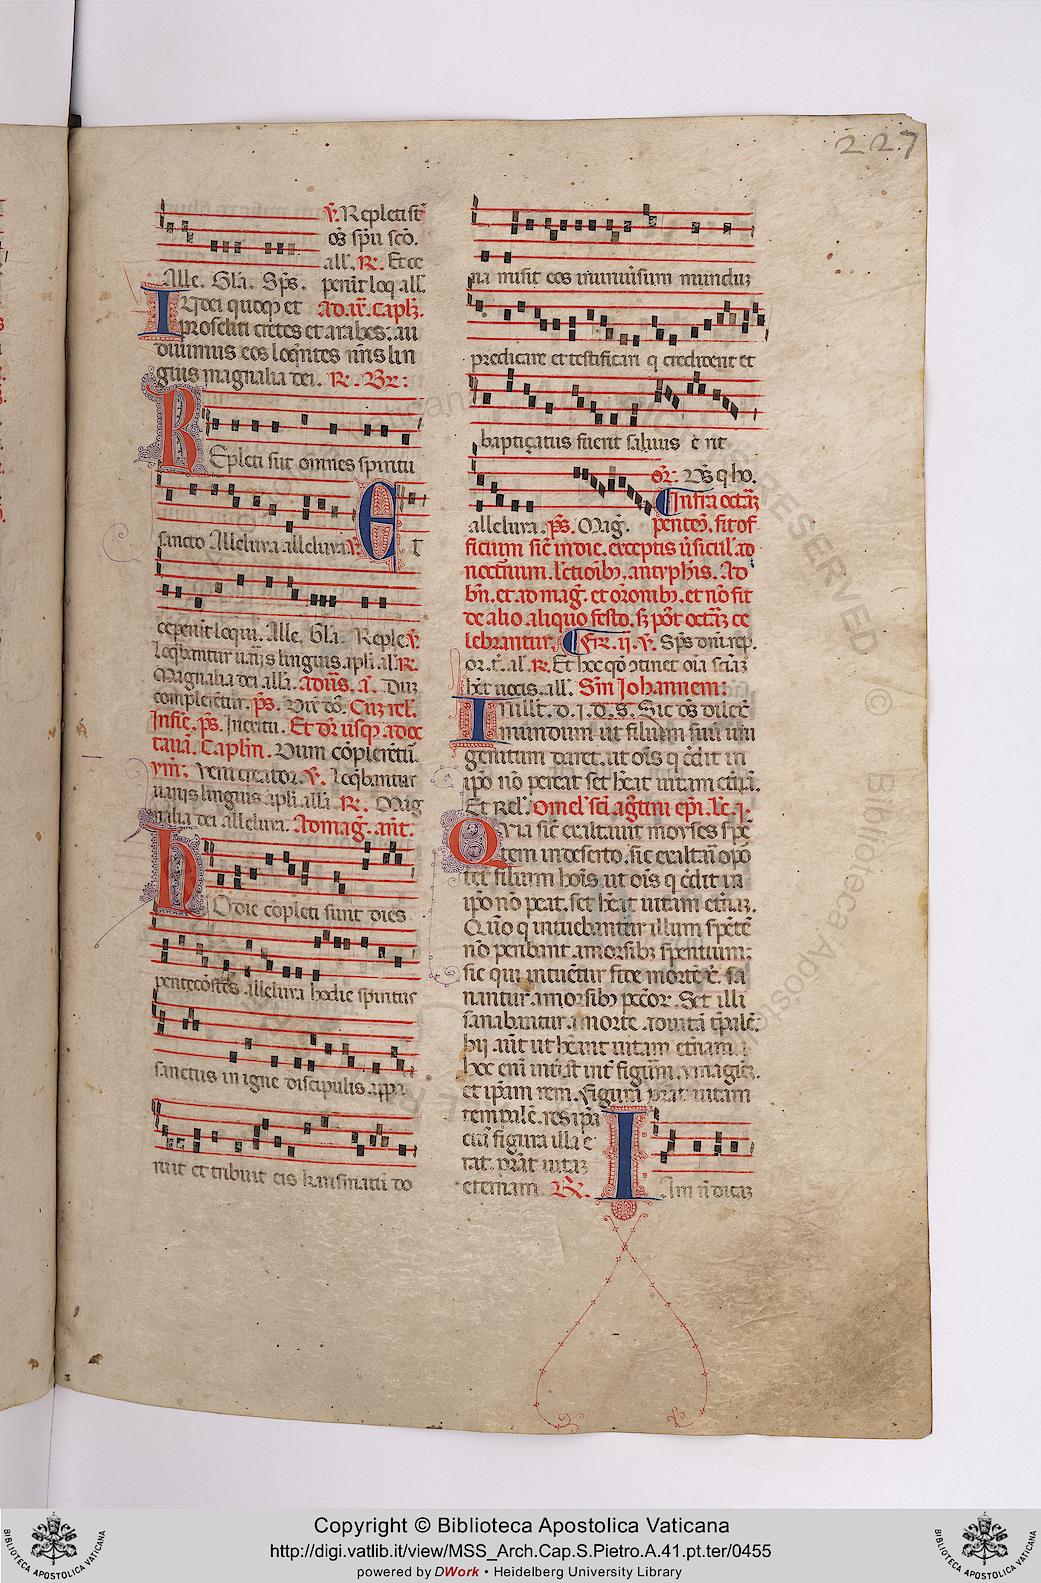 227
℣. Repleti st̄
oēs sp̄u sc̄o.
all̄. ℟. Et ce
Alle. Gl̄a. Sp̄s. perūt loq all̄.
Iudei quoq; et Ad. ix. capl̄.
proseliti cretes et arabes. au
diuimus eos loq̄ntes nr̄is lin
guis magnalia dei. ℟. Br̄:
REpleti sūt omnes spiritu
sancto Alleluya alleluya ℣. Et
ceperūt loqui. Alle. Gl̄a. Reple. ℣.
Loq̄bantur uarijs linguis apl̄i. al̄. ℟.
Magnalia dei all̄a. Ad ur̄s. a. Duz
complerētur. ps̄. Dix̄ dō. Cuz rel̄.
Infīe. ps̄. In exitu. Et dr̄ usq; ad oc
tauā. Capl̄m. Dum cōplerētū.
ym̄. Veni creator. ℣. Loq̄bantur
uarijs linguis apl̄i all̄a. ℟. Mag
nalia dei alleluya. Ad maḡ. ant̄.
HOdie cōpleti sunt dies
pentecostes alleluya hodie spiritus
sanctus in igne discipulis appa
ruit et tribuit eis karismatū do
na misit eos in uniūsum mundum
predicare et testificari q̄ crediderit et
baptiçatus fuerit saluus erit
or̄. Ds̄ q ho.
alleluya. ps̄. Maḡ. Infra octaͫ
pentec̄. fit of
ficium sic̄ in die. exceptis ūsicul̄ ad
nocturnum. lectionib;. antyphis. Ad
bn̄. et ad maḡ. et orōnib;. et nō fit
de alio aliquo festo. s; pōt octāͫ ce
lebrantur. Fr̄. ij. ℣. Sp̄s dn̄i rep.
or. t̄. al̄. ℟. Et hoc qd̄ ↄtinet oīa sciāͫ
h̄et uocis. all̄. Sm̄ Iohannem:
In ill̄. t̄. d. i. d. s. Sic ds̄ dilex̄
mundum ut filium suū uni
genitum daret. ut oīs q c̄dit in
ip̄o nō pereat set h̄eat uitam et̄nā.
Et Rel̄. Omel̄ sc̄i agustini ep̄i. Lc̄. j.
QVia sic̄ exaltauit moyses s̄pē
tem in deserto. sic exaltari opō
tet filium hoīs. ut oīs q c̄dit in
ip̄o nō peat. set h̄eat uitam et̄nāͫ.
Quō q intuebant̄ur illum s̄pētē
nō peribant. a morsib; s̄pentium:
sic qui intuēt̄ur fide mortē x̄. sa
nantur a morsib; pc̄cor̄. Set illi
sanabantur a morte. ad uitā tp̄alē.
hij aūt ut h̄eant uitam et̄nam.
hoc eni in̄t̄est int̄ figurām. ymaginē.
et ip̄am rem. Figura p̄stat uitam
temp̄alē. res ip̄a
cui figura illa e
rat. p̄stat uitāͫ
eternam. ℟. IAm ñ dicaͫ
Copyright © Biblioteca Apostolica Vaticana
http://digi.vatlib.it/view/MSS_Arch.Cap.S.Pietro.A.41.pt.ter/0455
powered by DWork • Heidelberg University Library
BIBLIOTECA APOSTOLICA VATICANA
BIBLIOTECA APOSTOLICA VATICANA